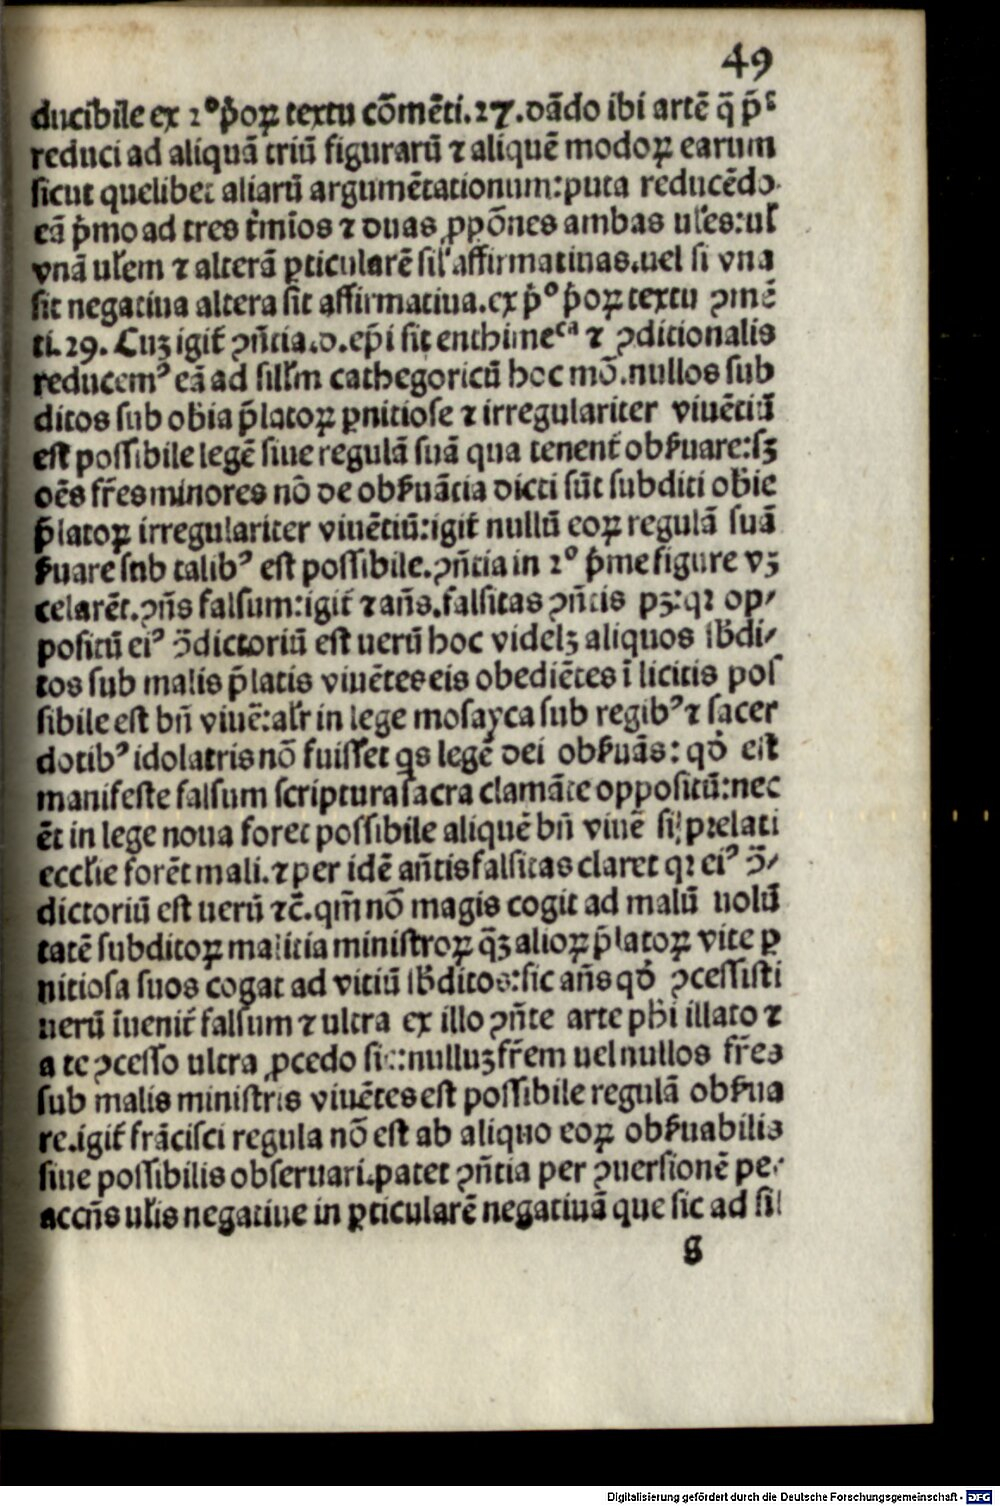 49
ducibile ex 2º p̄oꝝ textu cōmēti.27.dādo ibi artē q̄ p̄ᵗ
reduci ad aliquā triū figurarū ⁊ aliquē modoꝝ earum
sicut quelibet aliarū argumētationum:puta reducēdo
eā p̄mo ad tres t̄mīos ⁊ duas ꝓpōnes ambas ul̄es:ul̄
vnā ul̄em ⁊ alterā ꝑticularē sil̄ affirmatiuas.uel si vna
sit negatiua altera sit affirmatiua.ex p̄º p̄oꝝ textu ꝯmē
ti.29. Cuꝫ igit̄ ꝯñtia.d.ep̄i sit enthimeᶜᵃ ⁊ ꝯditionalis
reducemꝰ eā ad sill̄m cathegoricū hoc mō.nullos sub
ditos sub ob̄ia p̄latoꝝ ꝑnitiose ⁊ irregulariter viuētiū
est possibile legē siue regulā suā qua tenent̄ obẜuare:sꝫ
oēs fr̄es minores nō de obẜuātia dicti sūt subditi ob̄ie
p̄latoꝝ irregulariter viuētiū:igit̄ nullū eoꝝ regulā suā
ẜuare sub talibꝰ est possibile.ꝯñtia in 2º p̄me figure vꝫ
celarēt.ꝯñs falsum:igit̄ ⁊ añs.falsitas ꝯñtis pꝫ:qꝛ op/
positū eiꝰ ꝯ̄dictoriū est uerū hoc videlꝫ aliquos sb̄di/
tos sub malis p̄latis viuētes eis obediētes ī licitis pos
sibile est bn̄ viuē:al̄r in lege mosayca sub regibꝰ ⁊ sacer
dotibꝰ idolatris nō fuisset qs legē dei obẜuās: qd̓ est
manifeste falsum scriptura sacra clamāte oppositū:nec
ēt in lege noua foret possibile aliquē bn̄ viuē si prelati
eccl̄ie forēt mali.⁊ per idē añtis falsitas claret qꝛ eiꝰ ꝯ̄/
dictoriū est uerū ⁊c̄.qm̄ nō magis cogit ad malū uolū
tatē subditoꝝ malitia ministroꝝ q̄ꝫ alioꝝ p̄latoꝝ vite ꝑ
nitiosa suos cogat ad vitiū sb̄ditos:sic añs qd̓ ꝯcessisti
uerū īuenit̄ falsum ⁊ ultra ex illo ꝯñte arte ph̄i illato ⁊
a te ꝯcesso ultra ꝓcedo sic:nulluꝫ fr̄em uel nullos fr̄es
sub malis ministris viuētes est possibile regulā obẜua
re.igit̄ frācisci regula nō est ab aliquo eoꝝ obẜuabilis
siue possibilis obseruari.patet ꝯñtia per ꝯuersionē pe.
accñs ul̄is negatiue in ꝑticularē negatiuā que sic ad sil
g
Digitalisierung gefördert durch die Deutsche Forschungsgemeinschaft - DFG